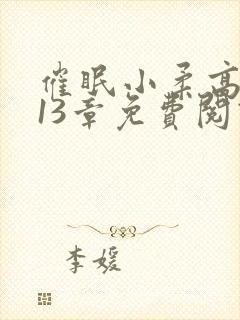 催眠小柔高
13章免費閱
李媛